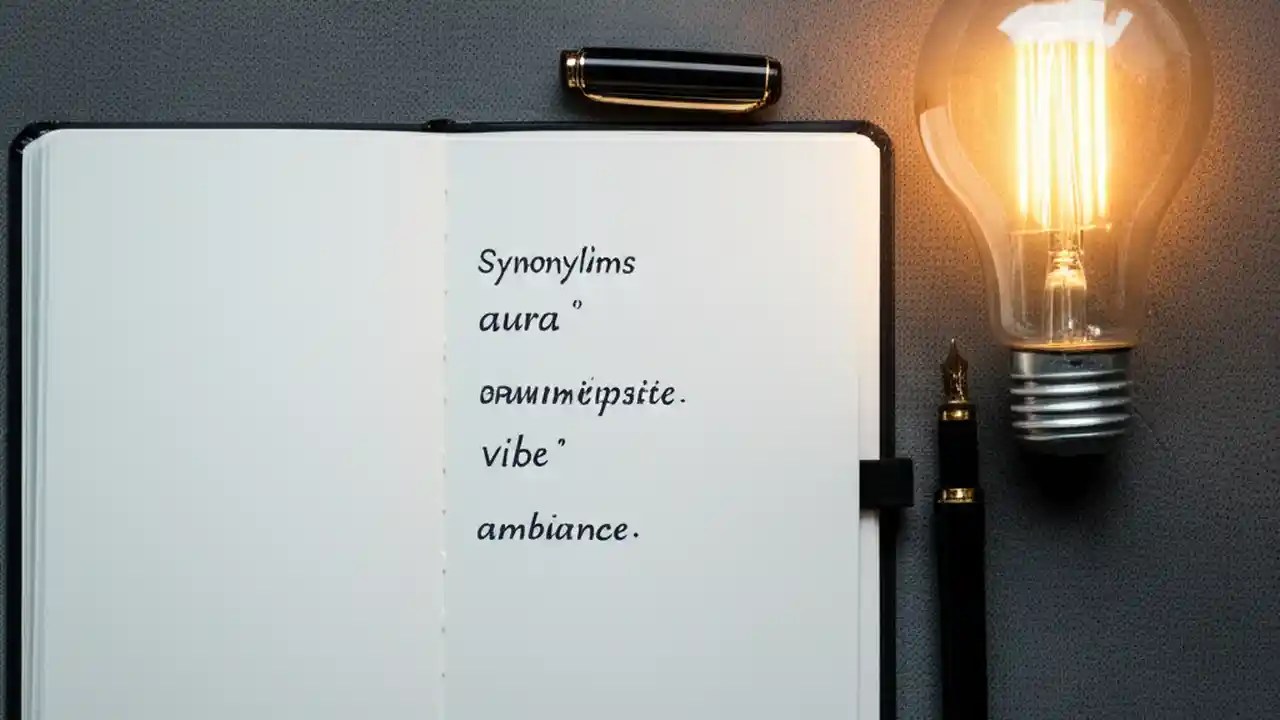 Synonylims
aura "
vibe "
ambiance.